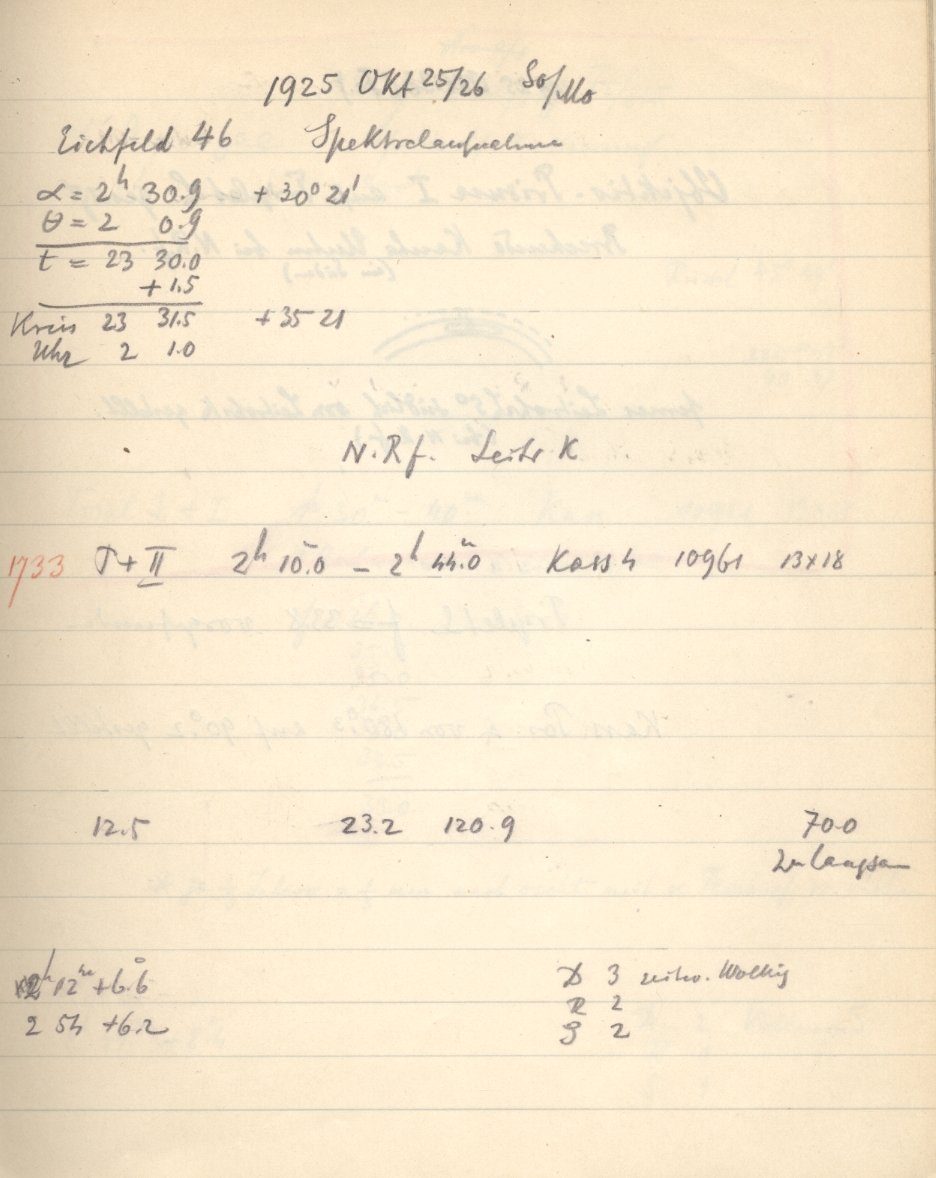 1925 Okt 25/26 So/Mo
Eichfeld 46 Spektralaufnahme
α = 2h 30.9 +30° 21'
θ = 2 0.9
t = 23 30.0
+1.5
Kreis 23 31.5 +35 21
Uhr 2 1.0
N.Rf. Leitr K
1733 T+II 2h 10m.0 – 2h 44m.0 Kass 4 10961 13x18
12.5 23.2 120.9 700
zu langsam
2h 12m +6°.6
2 54 +6.2
D 3 zeitw. Wolkig
R 2
S 2